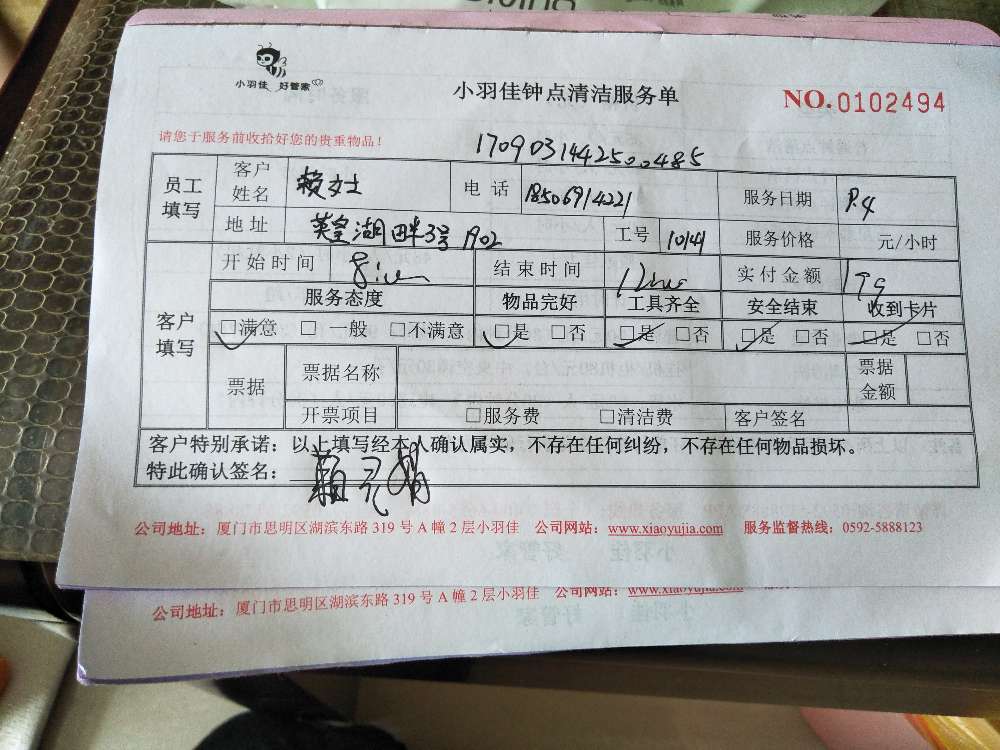 小羽佳 好管家
小羽佳钟点清洁服务单
NO.0102494
请您于服务前收拾好您的贵重物品！
1709031442500485
员工填写 客户姓名 赖女士 电话 18506914221 服务日期 9.4
地址 英皇湖畔3号1902 工号 10141 服务价格 元/小时
客户填写 开始时间 结束时间 实付金额 199
服务态度 物品完好 工具齐全 安全结束 收到卡片
□满意 □一般 □不满意 □是 □否 □是 □否 □是 □否 □是 □否
票据 票据名称 票据金额
开票项目 □服务费 □清洁费 客户签名
客户特别承诺：以上填写经本人确认属实，不存在任何纠纷，不存在任何物品损坏。
特此确认签名：
公司地址：厦门市思明区湖滨东路 319 号 A 幢 2 层小羽佳 公司网站：www.xiaoyujia.com 服务监督热线：0592-5888123
公司地址：厦门市思明区湖滨东路 319 号 A 幢 2 层小羽佳 公司网站：www.xiaoyujia.com